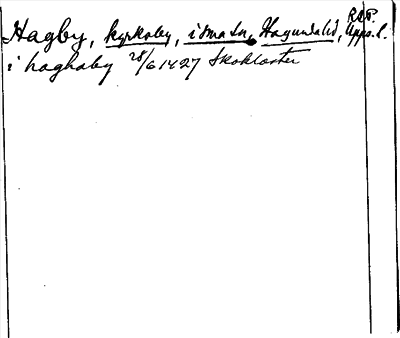 Hagby, kyrkoby, i sma sn, Hagunda hd, Upps. l.
i haghaby 28/6 1427 Skokloster